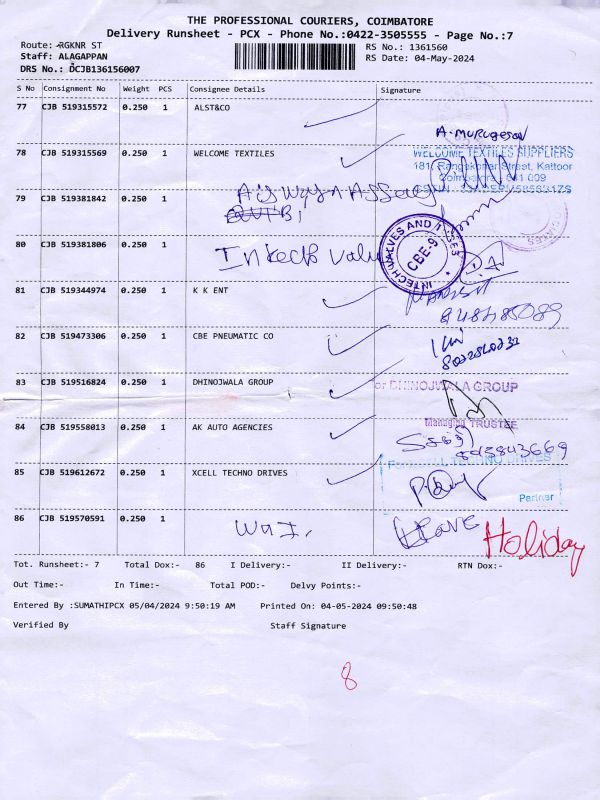 THE PROFESSIONAL COURIERS, COIMBATORE
Delivery Runsheet - PCX - Phone No.:0422-3505555 - Page No.:7
Route: RGKNR ST
RS No.: 1361560
Staff: ALAGAPPAN
RS Date: 04-May-2024
DRS No.: DCJB136156007
S No Consignment No Weight PCS Consignee Details Signature
77 CJB 519315572 0.250 1 ALST&CO
A. MURUGESAN
78 CJB 519315569 0.250 1 WELCOME TEXTILES
WELCOME TEXTILES SUPPLIERS
Street, Kattoor
79 CJB 519381842 0.250 1
80 CJB 519381806 0.250 1
INTECH VALVES AND CBE-9
81 CJB 519344974 0.250 1 K K ENT
82 CJB 519473306 0.250 1 CBE PNEUMATIC CO
83 CJB 519516824 0.250 1 DHINOJWALA GROUP
or DHINOJWALA GROUP
Managing TRUSTEE
84 CJB 519558013 0.250 1 AK AUTO AGENCIES
85 CJB 519612672 0.250 1 XCELL TECHNO DRIVES
TECHNO DRIVES
Partner
86 CJB 519570591 0.250 1 Holiday
Tot. Runsheet:- 7 Total Dox:- 86 I Delivery:- II Delivery:- RTN Dox:-
Out Time:- In Time:- Total POD:- Delvy Points:-
Entered By :SUMATHIPCX 05/04/2024 9:50:19 AM Printed On: 04-05-2024 09:50:48
Verified By Staff Signature
8